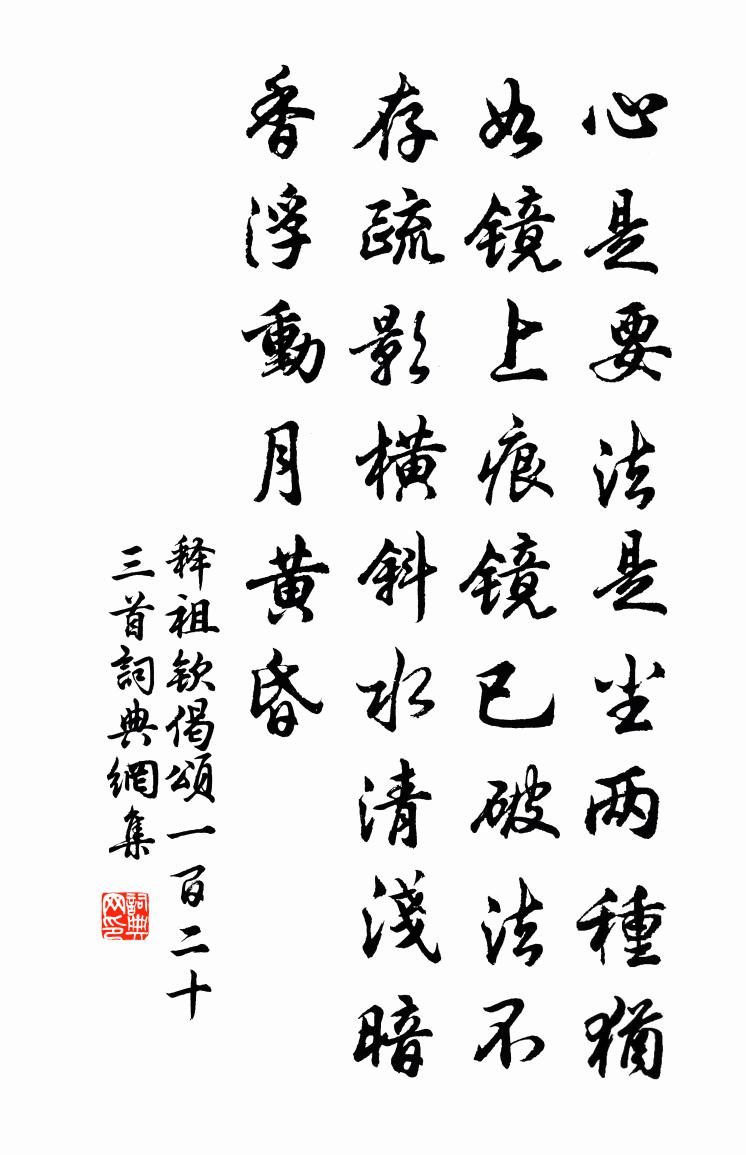 心是要法是尘两種猶
如镜上痕镜已破法不
存疏影橫斜水清淺暗
香浮動月黄昏
释祖钦偈頌一百二十
三首詞典網集
詞典网印